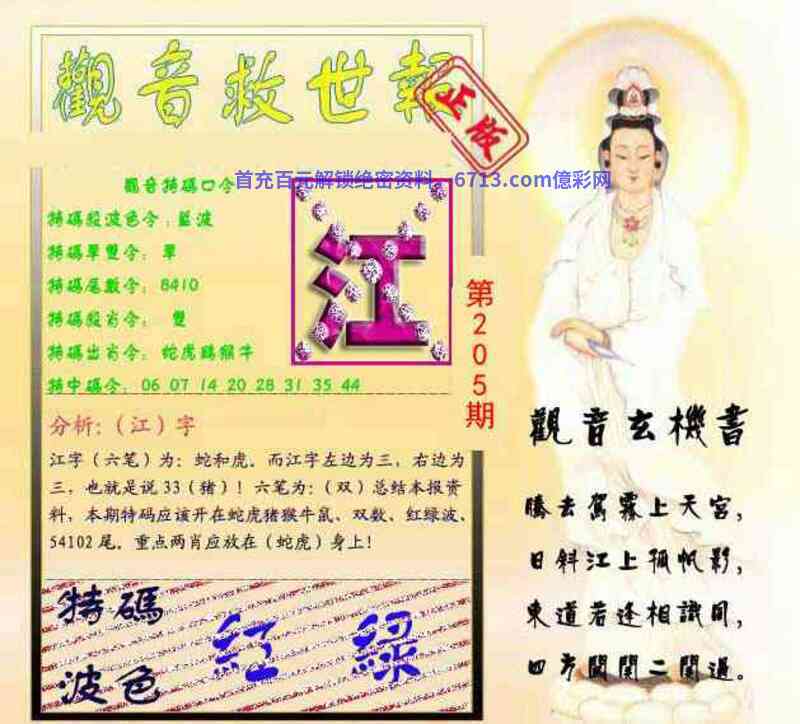 觀音救世報
正版
觀音特碼口令
首充百元解锁绝密资料，6713.com億彩网
特碼殺波色令：藍波
特碼單雙令：單
特碼尾數令：8410
特碼殺肖令：雙
特碼出肖令：蛇虎鷄猴牛
特中碼令：06 07 14 20 28 31 35 44
江
第205期
分析：（江）字
江字（六笔）为：蛇和虎。而江字左边为三，右边为
三，也就是说33（猪）！六笔为：（双）总结本报资
料，本期特码应该开在蛇虎猪猴牛鼠、双数、红绿波、
54102尾。重点两肖应放在（蛇虎）身上！
特碼
波色
紅 綠
觀音玄機書
騰去駕霧上天宮，
日斜江上孤帆影，
東道若逢相識問，
四方闖關二關過。